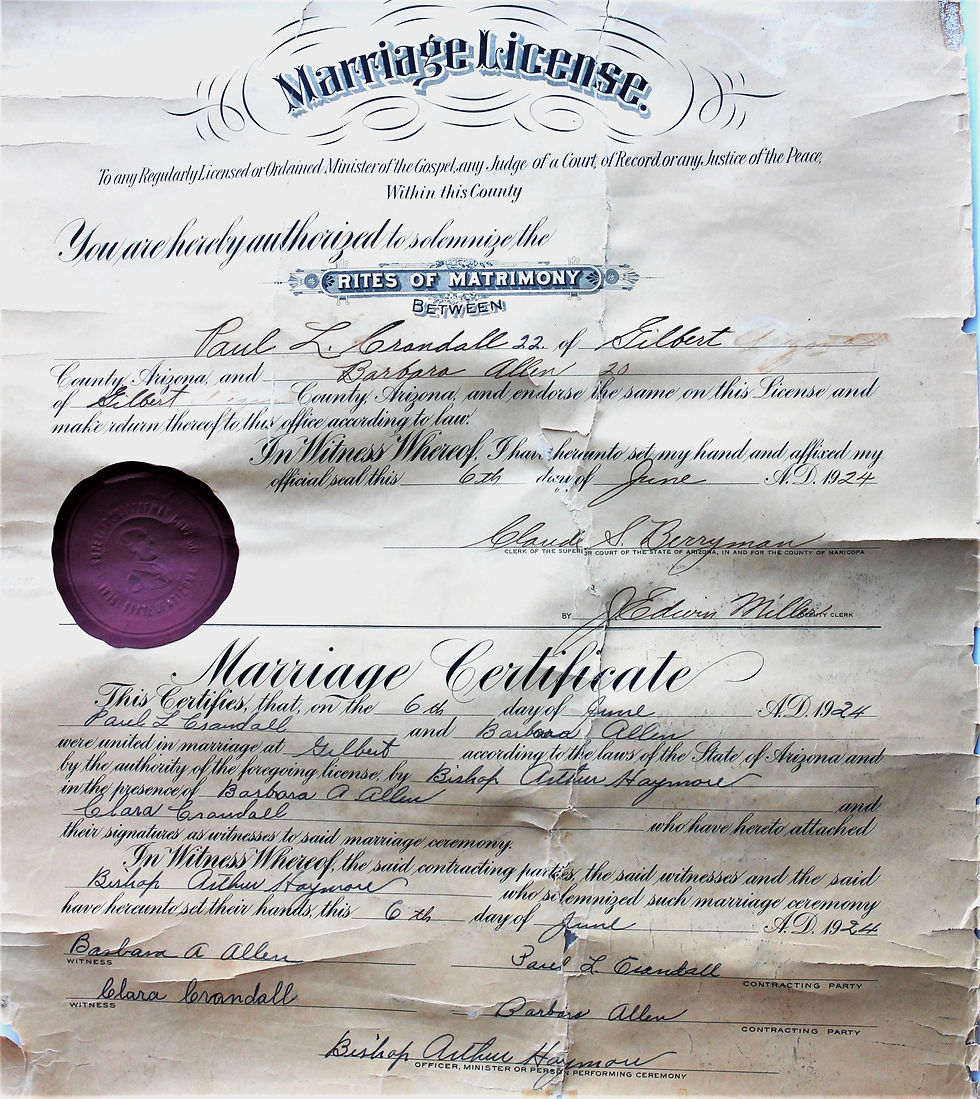 Marriage License.
To any Regularly Licensed or Ordained Minister of the Gospel, any Judge of a Court, of Record or any Justice of the Peace,
Within this County
You are hereby authorized to solemnize the
RITES OF MATRIMONY
BETWEEN
Paul L. Crandall 22 of Gilbert
County, Arizona, and Barbara Allen 20
of Gilbert County, Arizona, and endorse the same on this License and
make return thereof to this office according to law.
In Witness Whereof, I have hereunto set my hand and affixed my
official seal this 6th day of June A.D. 1924
Claude S. Berryman
CLERK OF THE SUPERIOR COURT OF THE STATE OF ARIZONA, IN AND FOR THE COUNTY OF MARICOPA
BY J Edwin Miller DEPUTY CLERK
Marriage Certificate
This Certifies, that, on the 6th day of June A.D. 1924
Paul L Crandall and Barbara Allen
were united in marriage at Gilbert according to the laws of the State of Arizona and
by the authority of the foregoing license, by Bishop Arthur Haymore
in the presence of Barbara A Allen and
Clara Crandall who have hereto attached
their signatures as witnesses to said marriage ceremony.
In Witness Whereof, the said contracting parties, the said witnesses and the said
Bishop Arthur Haymore who solemnized such marriage ceremony
have hereunto set their hands, this 6th day of June A.D. 1924
Barbara A Allen
WITNESS
Paul L. Crandall
CONTRACTING PARTY
Clara Crandall
WITNESS
Barbara Allen
CONTRACTING PARTY
Bishop Arthur Haymore
OFFICER, MINISTER OR PERSON PERFORMING CEREMONY